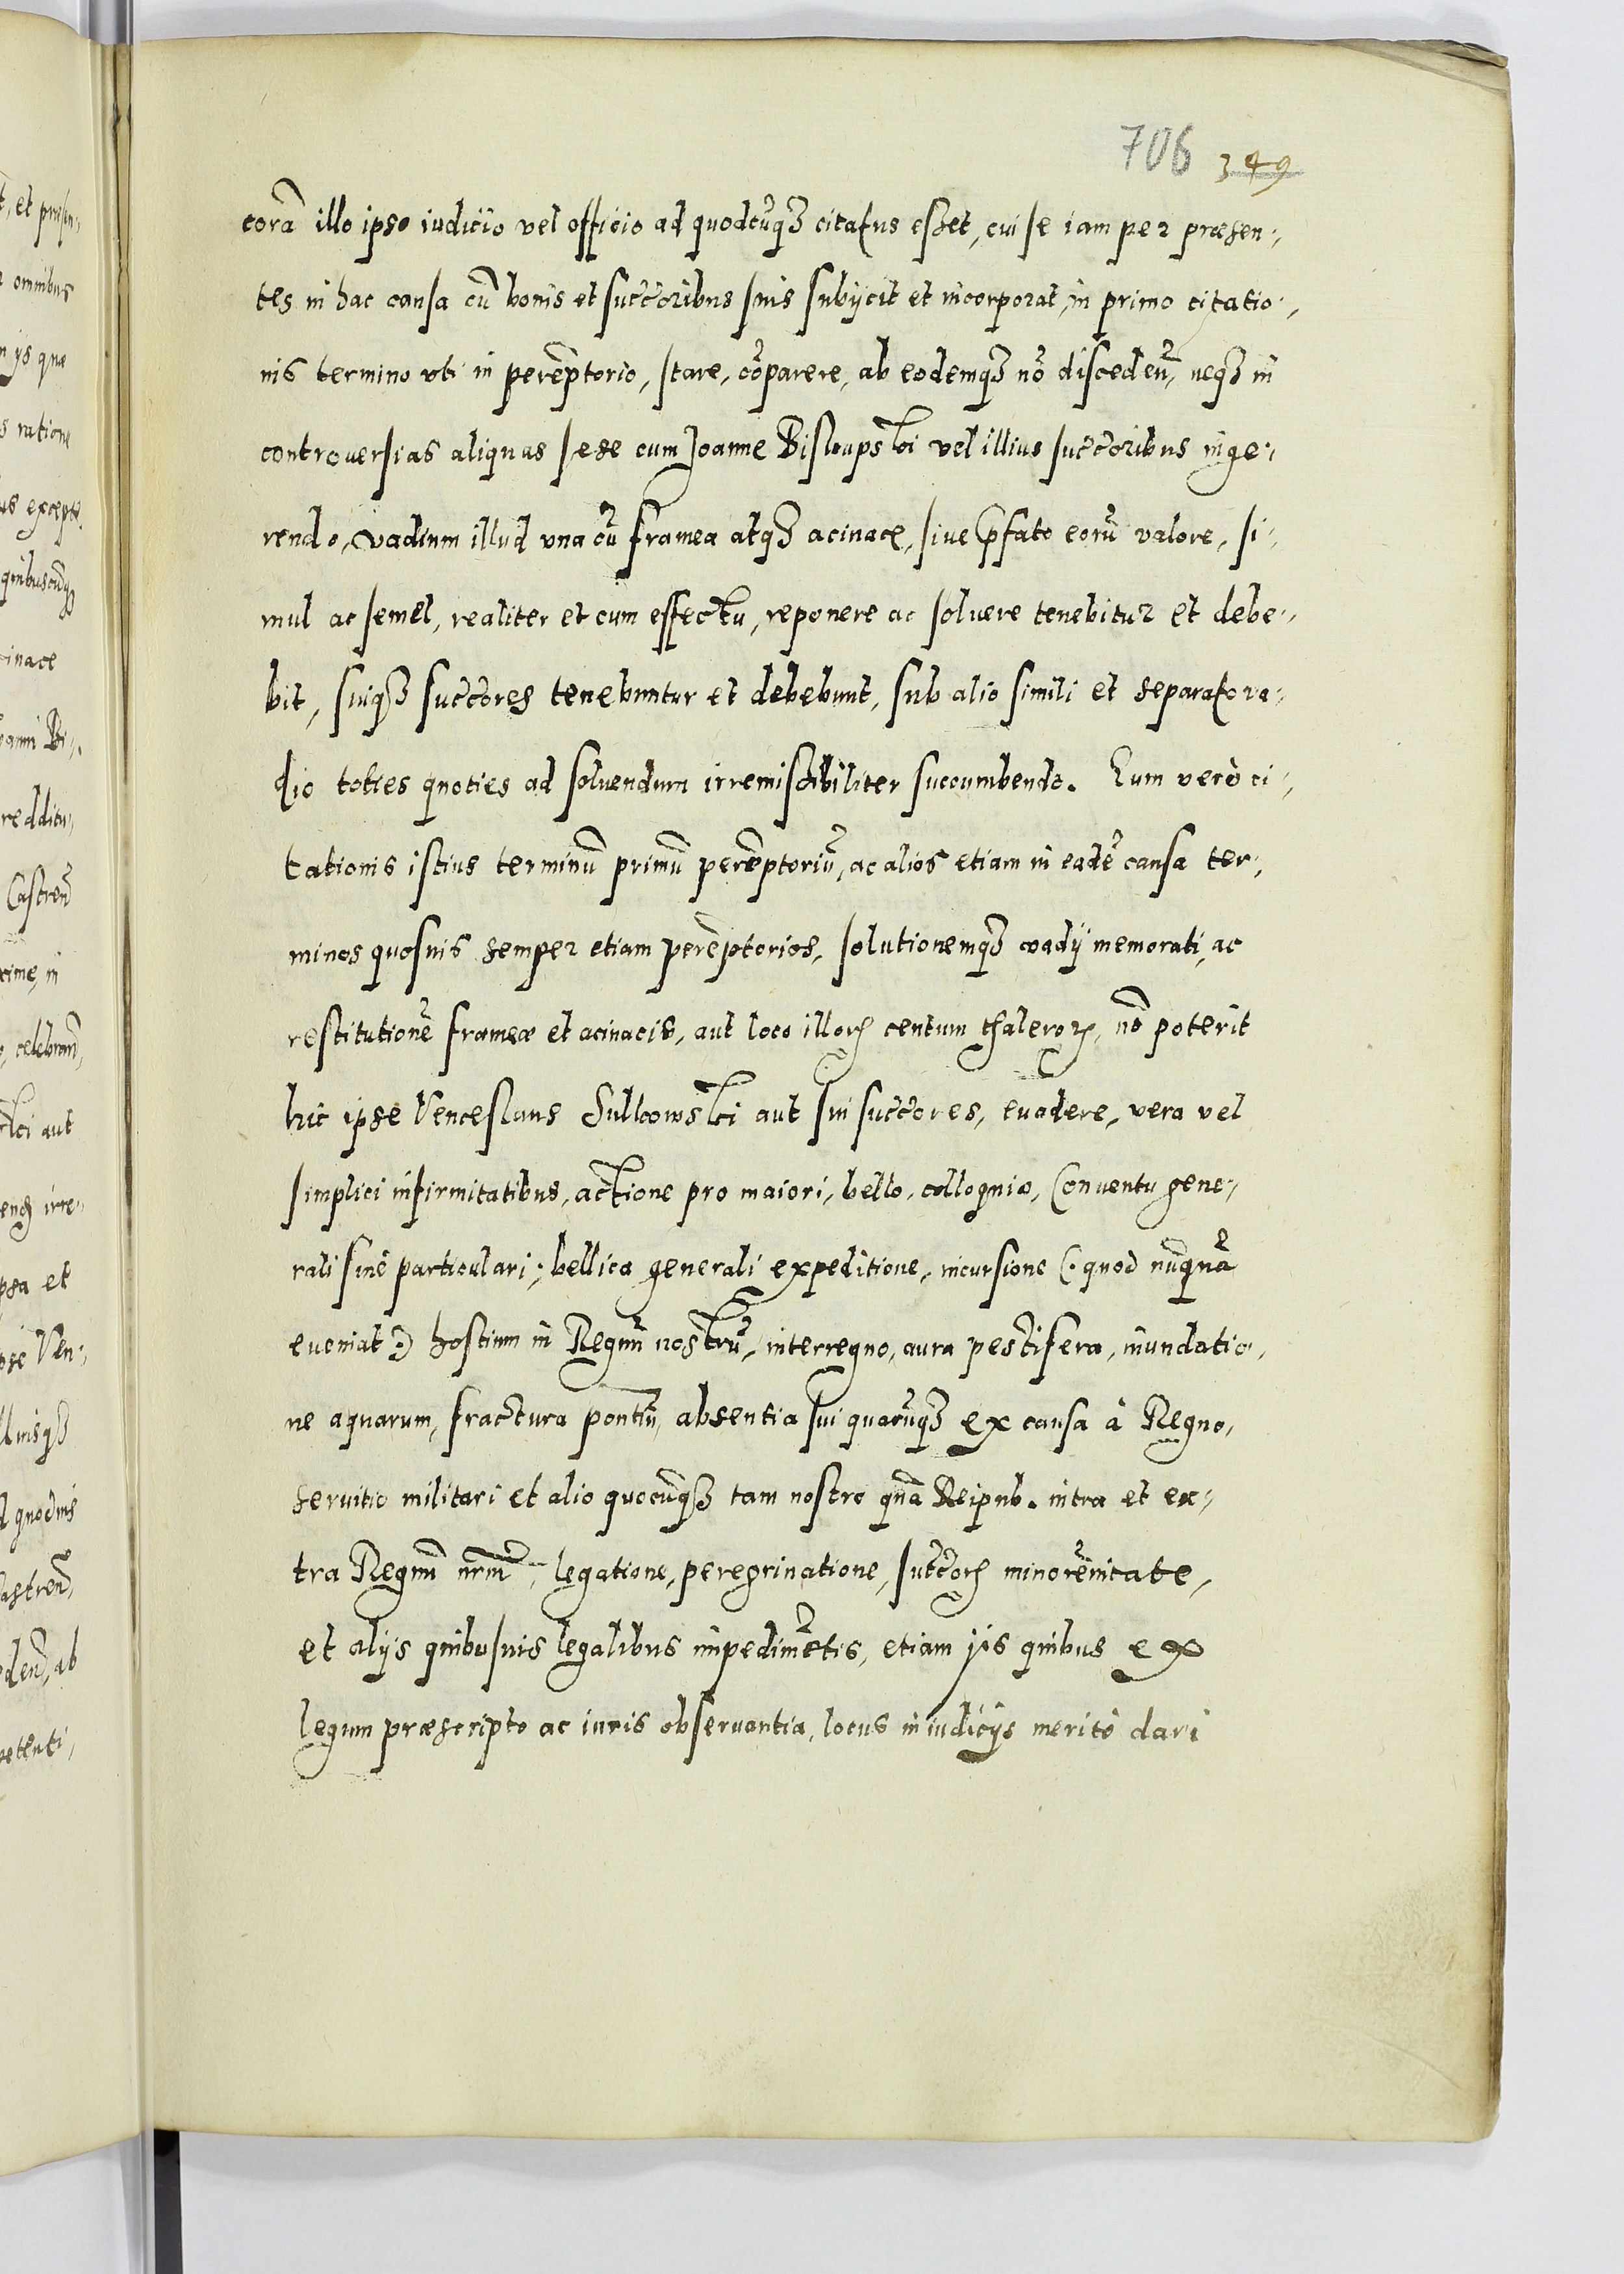 706 349
corã illo ipso iudicio vel officio ad quodcũqȝ citatus esset, cui se iam per præsen-
tes in hac causa cũ bonis et succoribus suis subijcit et incorporat, in primo citatio-
nis termino uti in perẽptorio, stare, cõparere, ab eodemqȝ nõ discedeñ, neqȝ in
controversias aliquas sese cum Joanne Biskupski vel illius succoribus inge-
rendo, vadium illud una cũ framea atqȝ acinace, sive pfato eorũ valore, si-
mul ac semel, realiter et cum effectu, reponere ac solvere tenebitur et debe-
bit, suiqȝ succores tenebuntur et debebunt, sub alio simili et separato va-
dio toties quoties ad solvendum irremissibiliter succumbendo. Eum verò ci-
tationis istius terminũ primũ perẽptoriũ, ac alios etiam in eadẽ causa ter-
minos quosvis semper etiam perẽptorios, solutionemqȝ vadij memorati, ac
restitutionẽ frameæ et acinacis, aut loco illorꝝ centum thalerorꝝ, nõ poterit
hic ipse Venceslaus Sulkowski aut sui succores, evadere, vera vel
simplici infirmitatibus, actione pro maiori, bello, colloquio, Conventu gene-
rali sive particulari, bellica generali expeditione, incursione (: quod nũquã
eveniat :) hostium in Regnũ nostrũ, interregno, aura pestifera, inundatio-
ne aquarum, fractura pontiũ, absentia sui quacũqȝ ex causa à Regno,
servitio militari et alio quocũqȝ tam nostro quã Reipub. intra et ex-
tra Regnũ nrm̃, legatione, peregrinatione, succorꝝ minorẽnitate,
et alijs quibusvis legalibus impedimẽtis, etiam ijs quibus ex
legum præscripto ac iuris observantia, locus in iudicijs meritò dari